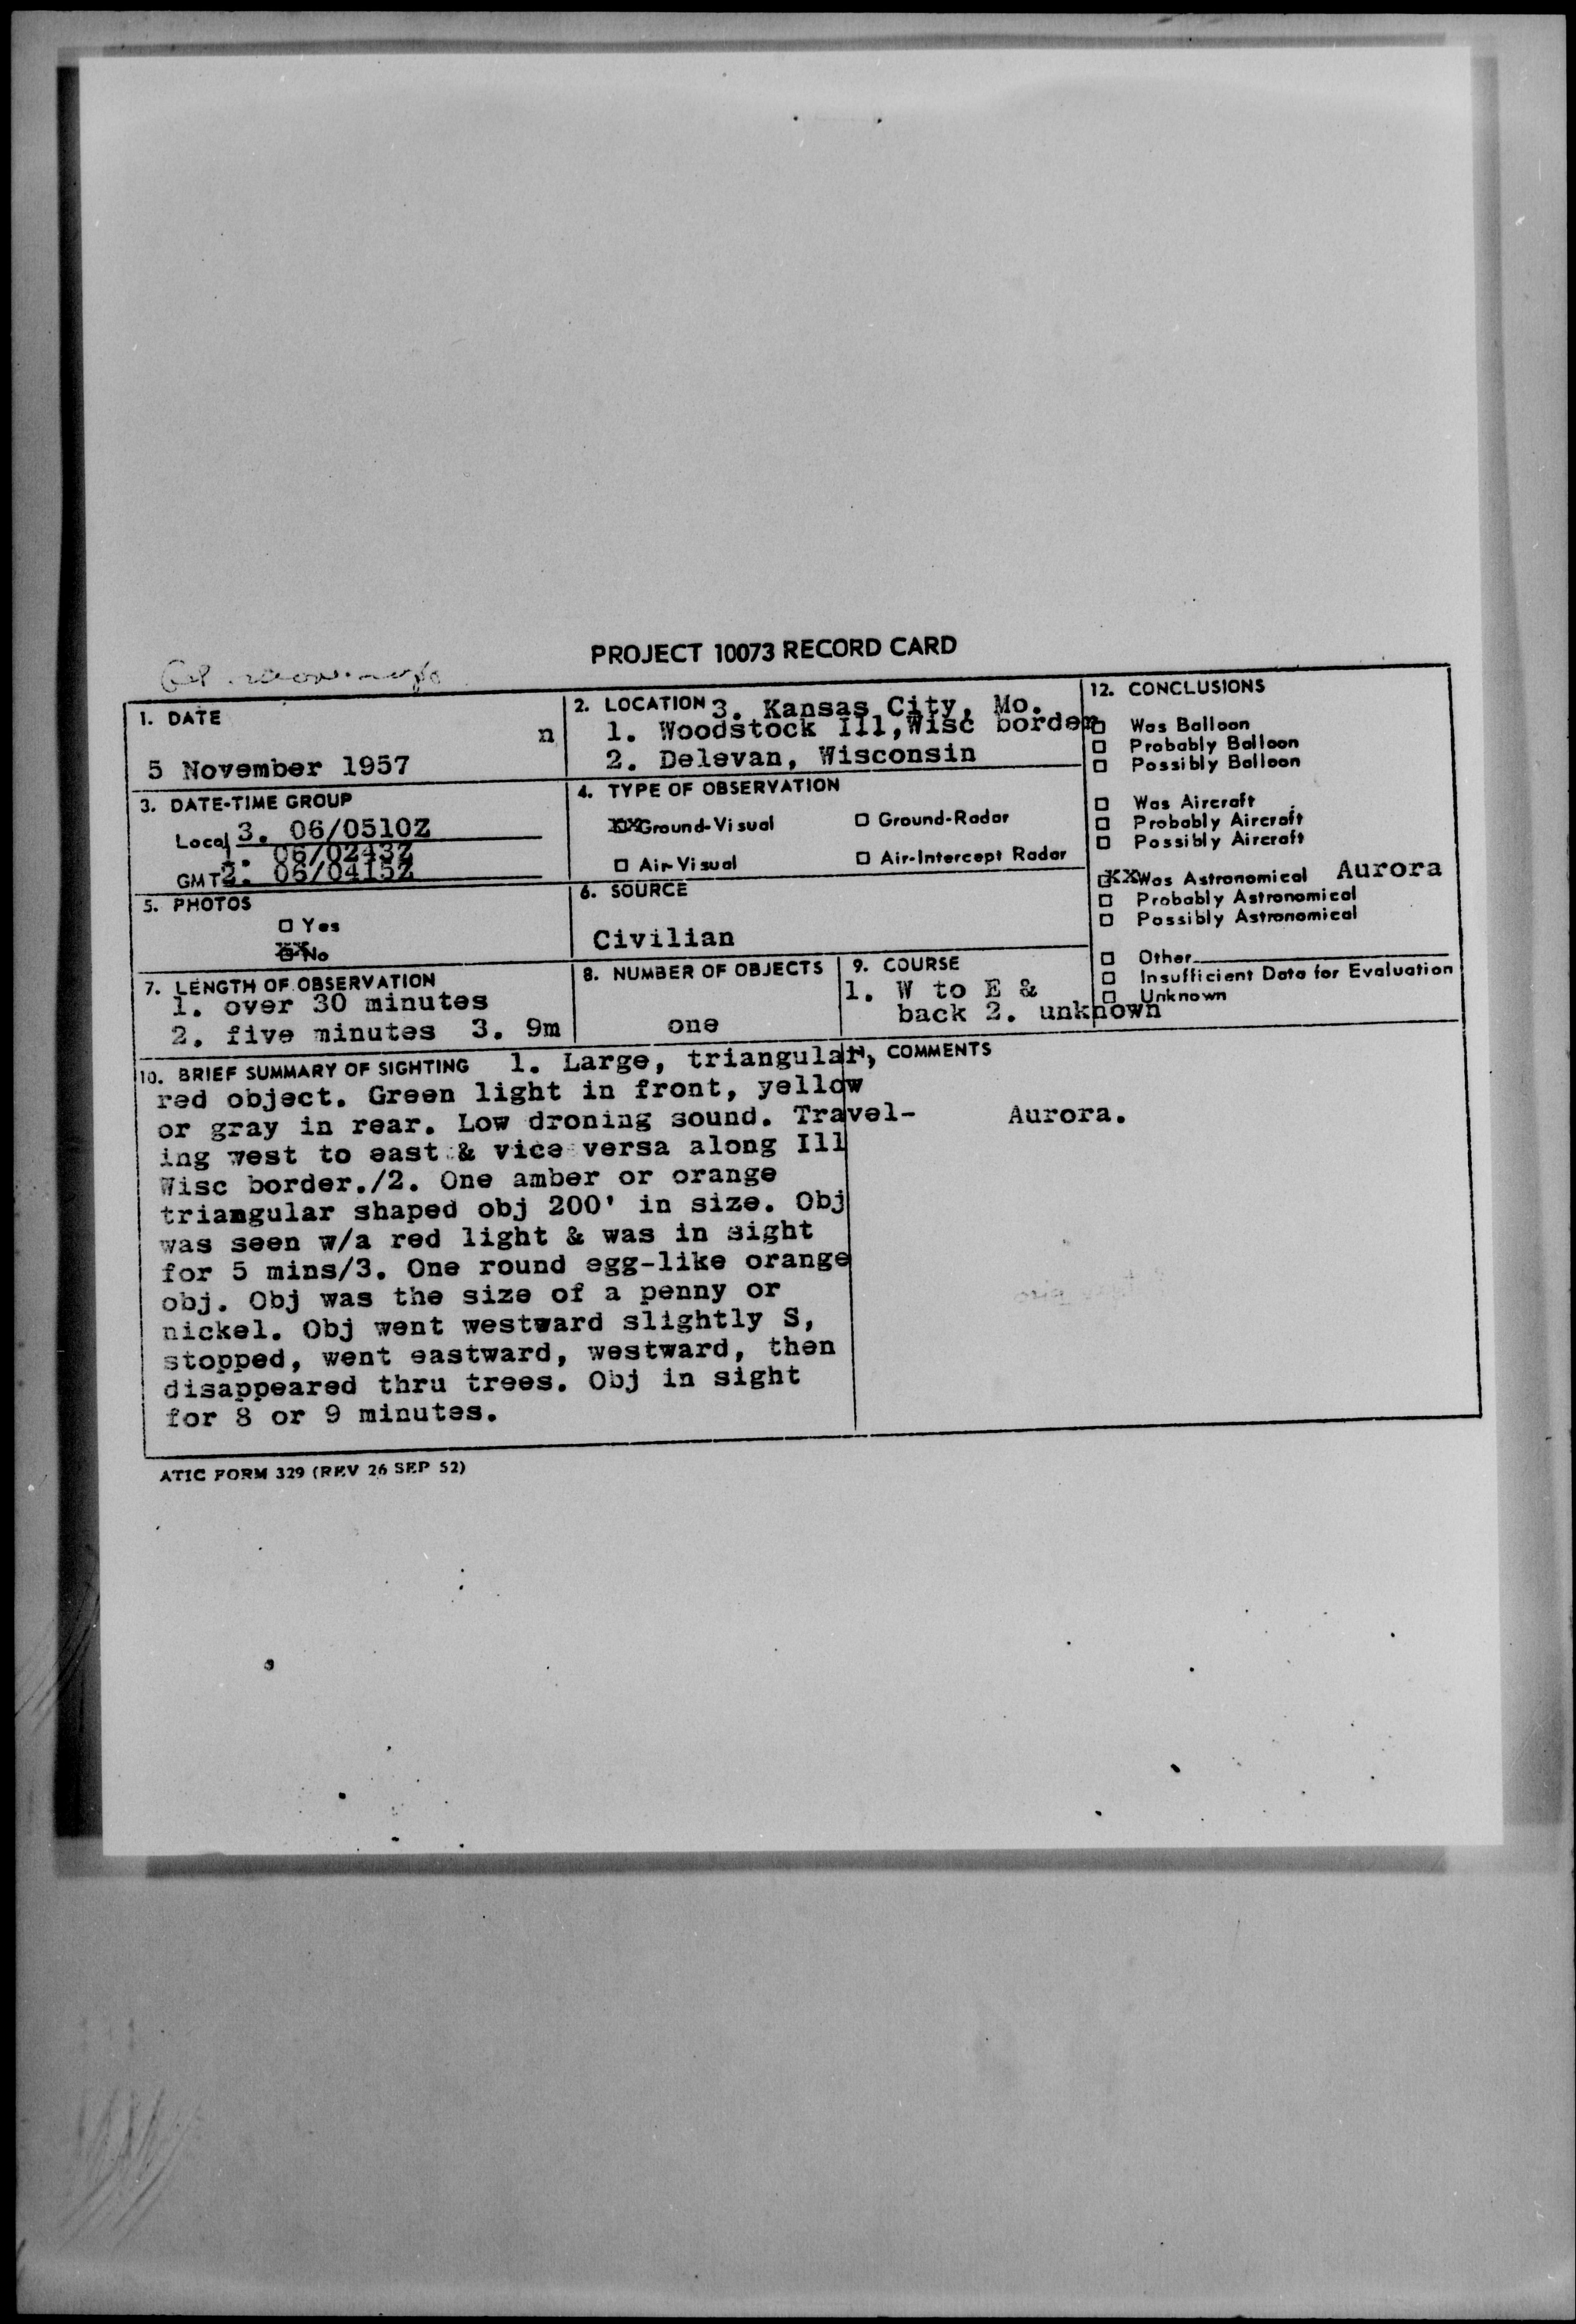 PROJECT 10073 RECORD CARD
1. DATE
n
5 November 1957
2. LOCATION 3. Kansas City, Mo.
1. Woodstock Ill, Wisc border
2. Delevan, Wisconsin
3. DATE-TIME GROUP
Local 3. 06/0510Z
1. 06/0243Z
GMT 2. 06/0415Z
4. TYPE OF OBSERVATION
XXGround-Visual □ Ground-Radar
□ Air-Visual □ Air-Intercept Radar
5. PHOTOS
□ Yes
XX No
6. SOURCE
Civilian
7. LENGTH OF OBSERVATION
1. over 30 minutes
2. five minutes 3. 9m
8. NUMBER OF OBJECTS
one
9. COURSE
1. W to E &
back 2. unknown
12. CONCLUSIONS
□ Was Balloon
□ Probably Balloon
□ Possibly Balloon
□ Was Aircraft
□ Probably Aircraft
□ Possibly Aircraft
XXWas Astronomical Aurora
□ Probably Astronomical
□ Possibly Astronomical
□ Other
□ Insufficient Data for Evaluation
□ Unknown
10. BRIEF SUMMARY OF SIGHTING 1. Large, triangular,
red object. Green light in front, yellow
or gray in rear. Low droning sound. Travel-
ing west to east & vice versa along Ill
Wisc border./2. One amber or orange
triangular shaped obj 200' in size. Obj
was seen w/a red light & was in sight
for 5 mins/3. One round egg-like orange
obj. Obj was the size of a penny or
nickel. Obj went westward slightly S,
stopped, went eastward, westward, then
disappeared thru trees. Obj in sight
for 8 or 9 minutes.
11. COMMENTS
Aurora.
ATIC FORM 329 (REV 26 SEP 52)